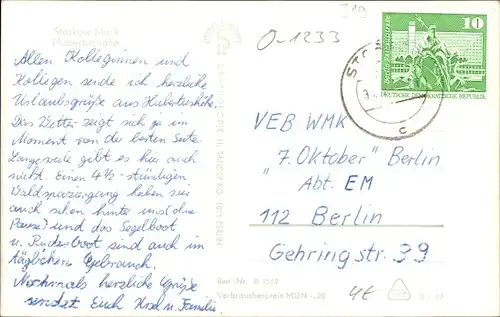 Storkow Mark
Hubertushöhe
Allen Kolleginnen und
Kollegen sende ich herzliche
Urlaubsgrüße aus Hubertushöhe.
Das Wetter zeigt sich ja im
Moment von der besten Seite.
Langeweile gibt es hier auch
nicht. Einen 4½-stündigen
Waldspaziergang haben wir
auch schon hinter uns (ohne
Pause) und das Segelboot
u. Ruderboot sind auch im
täglichen Gebrauch.
Nochmals herzliche Grüße
sendet Euch Ursel u. Familie.
O-1233
10
DEUTSCHE DEMOKRATISCHE REPUBLIK
STO
c
VEB WMK
"7. Oktober" Berlin
Abt. EM
112 Berlin
Gehringstr. 39
Best.-Nr. B 1512
Verbraucherpreis MDN -,20
4€